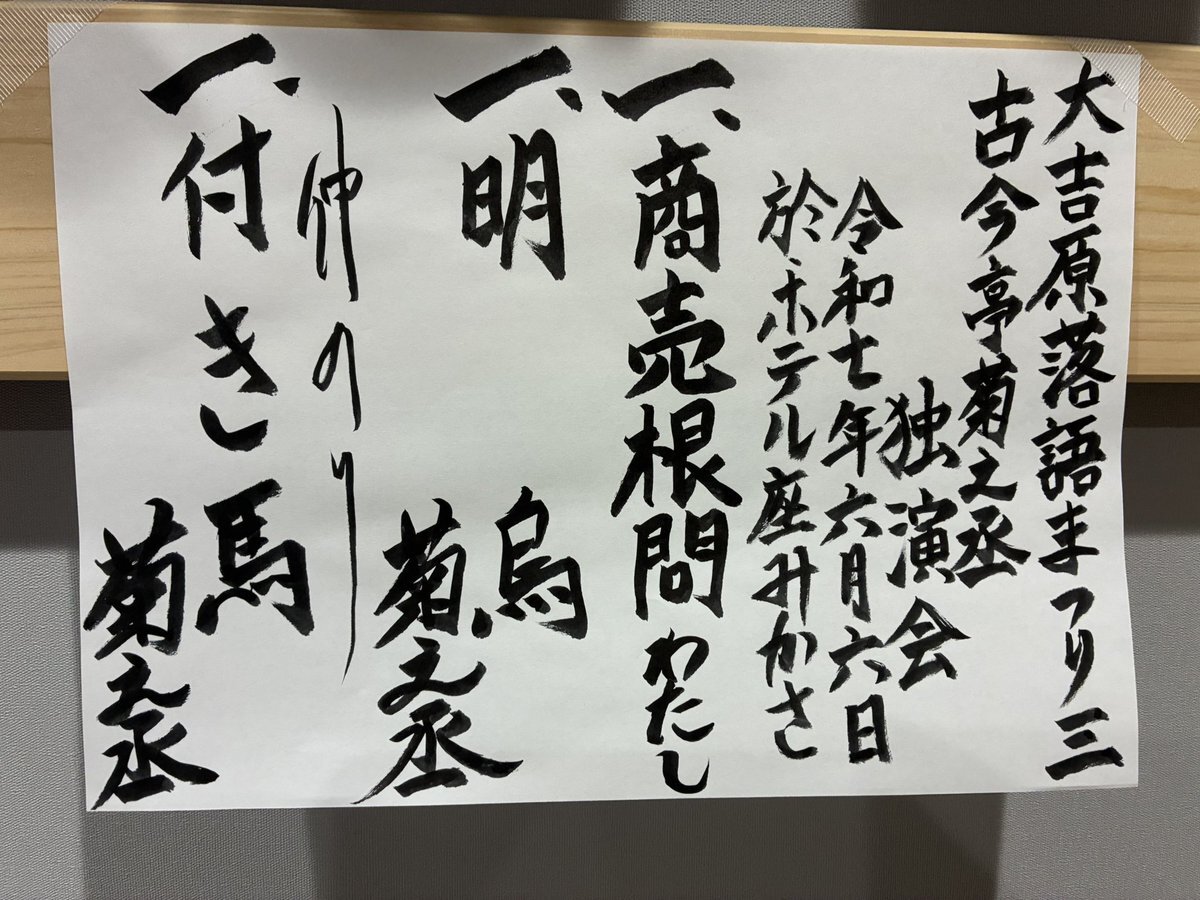 大吉原落語まつり三
古今亭菊之丞
独演会
令和七年六月六日
於ホテル座みかさ
一、商売根問 わたし
一、明烏 菊之丞
仲のり
一、付き馬 菊之丞